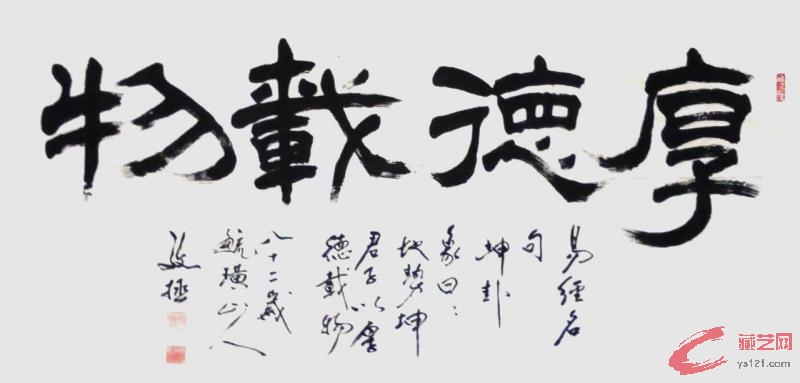 厚德載物
易經名
句
坤卦
象曰：
地勢坤
君子以厚
德載物
八十二歲
山人
藏艺网
ys121.com